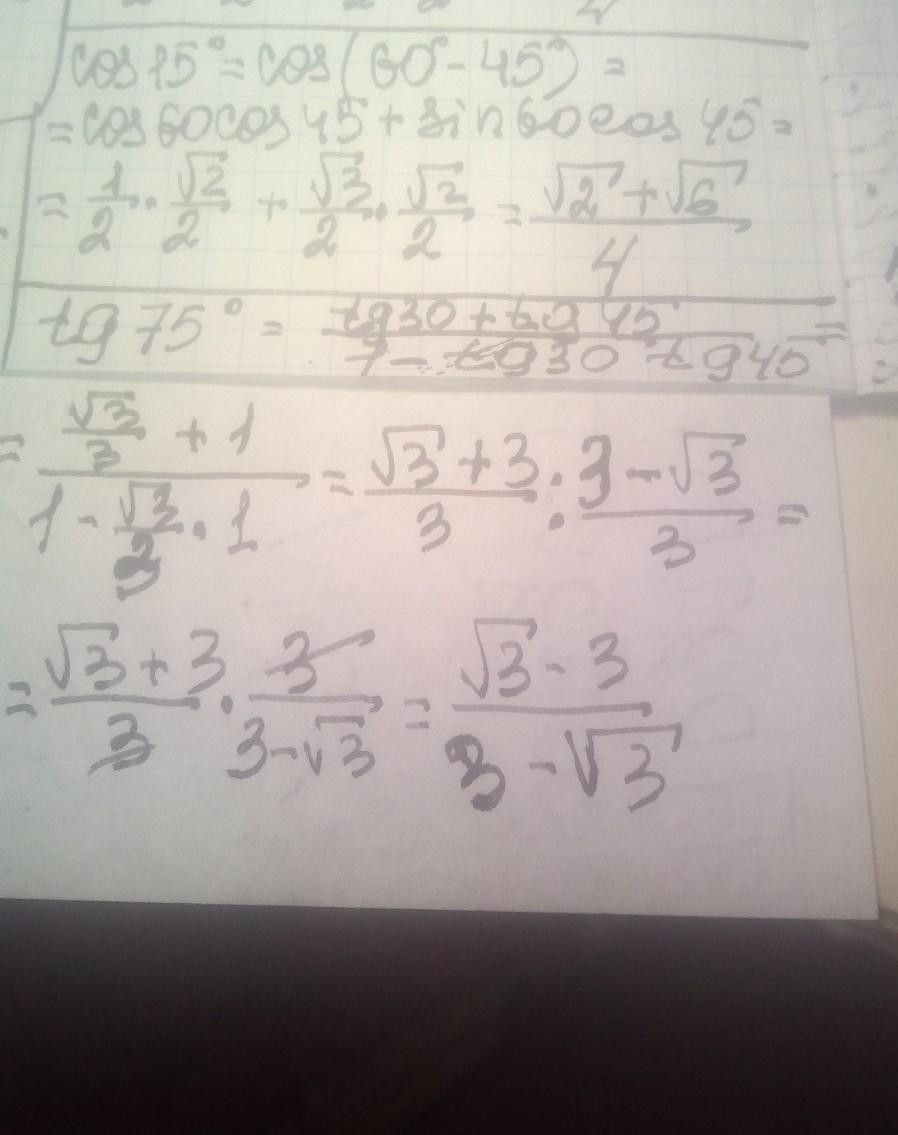 cos 15° = cos(60° - 45°) =
= cos 60 cos 45 + sin 60 cos 45 =
= 1/2 · √2/2 + √3/2 · √2/2 = (√2 + √6)/4
tg 75° = (tg30 + tg 45)/(1 - tg30 tg45) =
= (√3/3 + 1)/(1 - √3/3 · 1) = (√3 + 3)/3 : (3 - √3)/3 =
= (√3 + 3)/3 · 3/(3 - √3) = (√3 - 3)/(3 - √3)